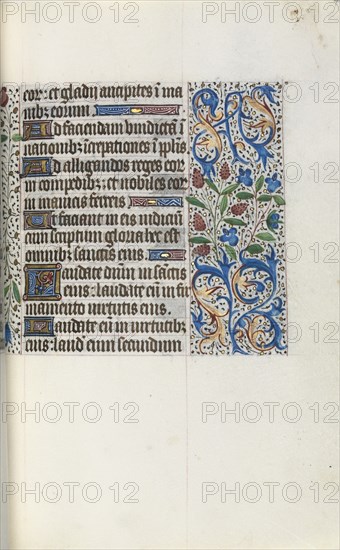 cor: et gladii ancipites i ma
nibz eorum
Ad faciendam vindictā ī
nationibz: īcrepationes ī ptis
Ad alligandos reges eor
in compedibz: et nobiles eor
in manicis ferreis
Ut faciant in eis iudiciū
conscriptum: gloria hec est
omnibz sanctis eius
Laudate dūm in sactis
eius: laudate eū in firma
mento virtutis eius.
Laudate eū in virtutibz
eius: laud eum secundum
PHOTO 12
PHOTO 12
PHOTO 12
PHOTO 12
PHOTO 12
PHOTO 12
PHOTO 12
PHOTO 12
PHOTO 12
PHOTO 12
PHOTO 12
PHOTO 12